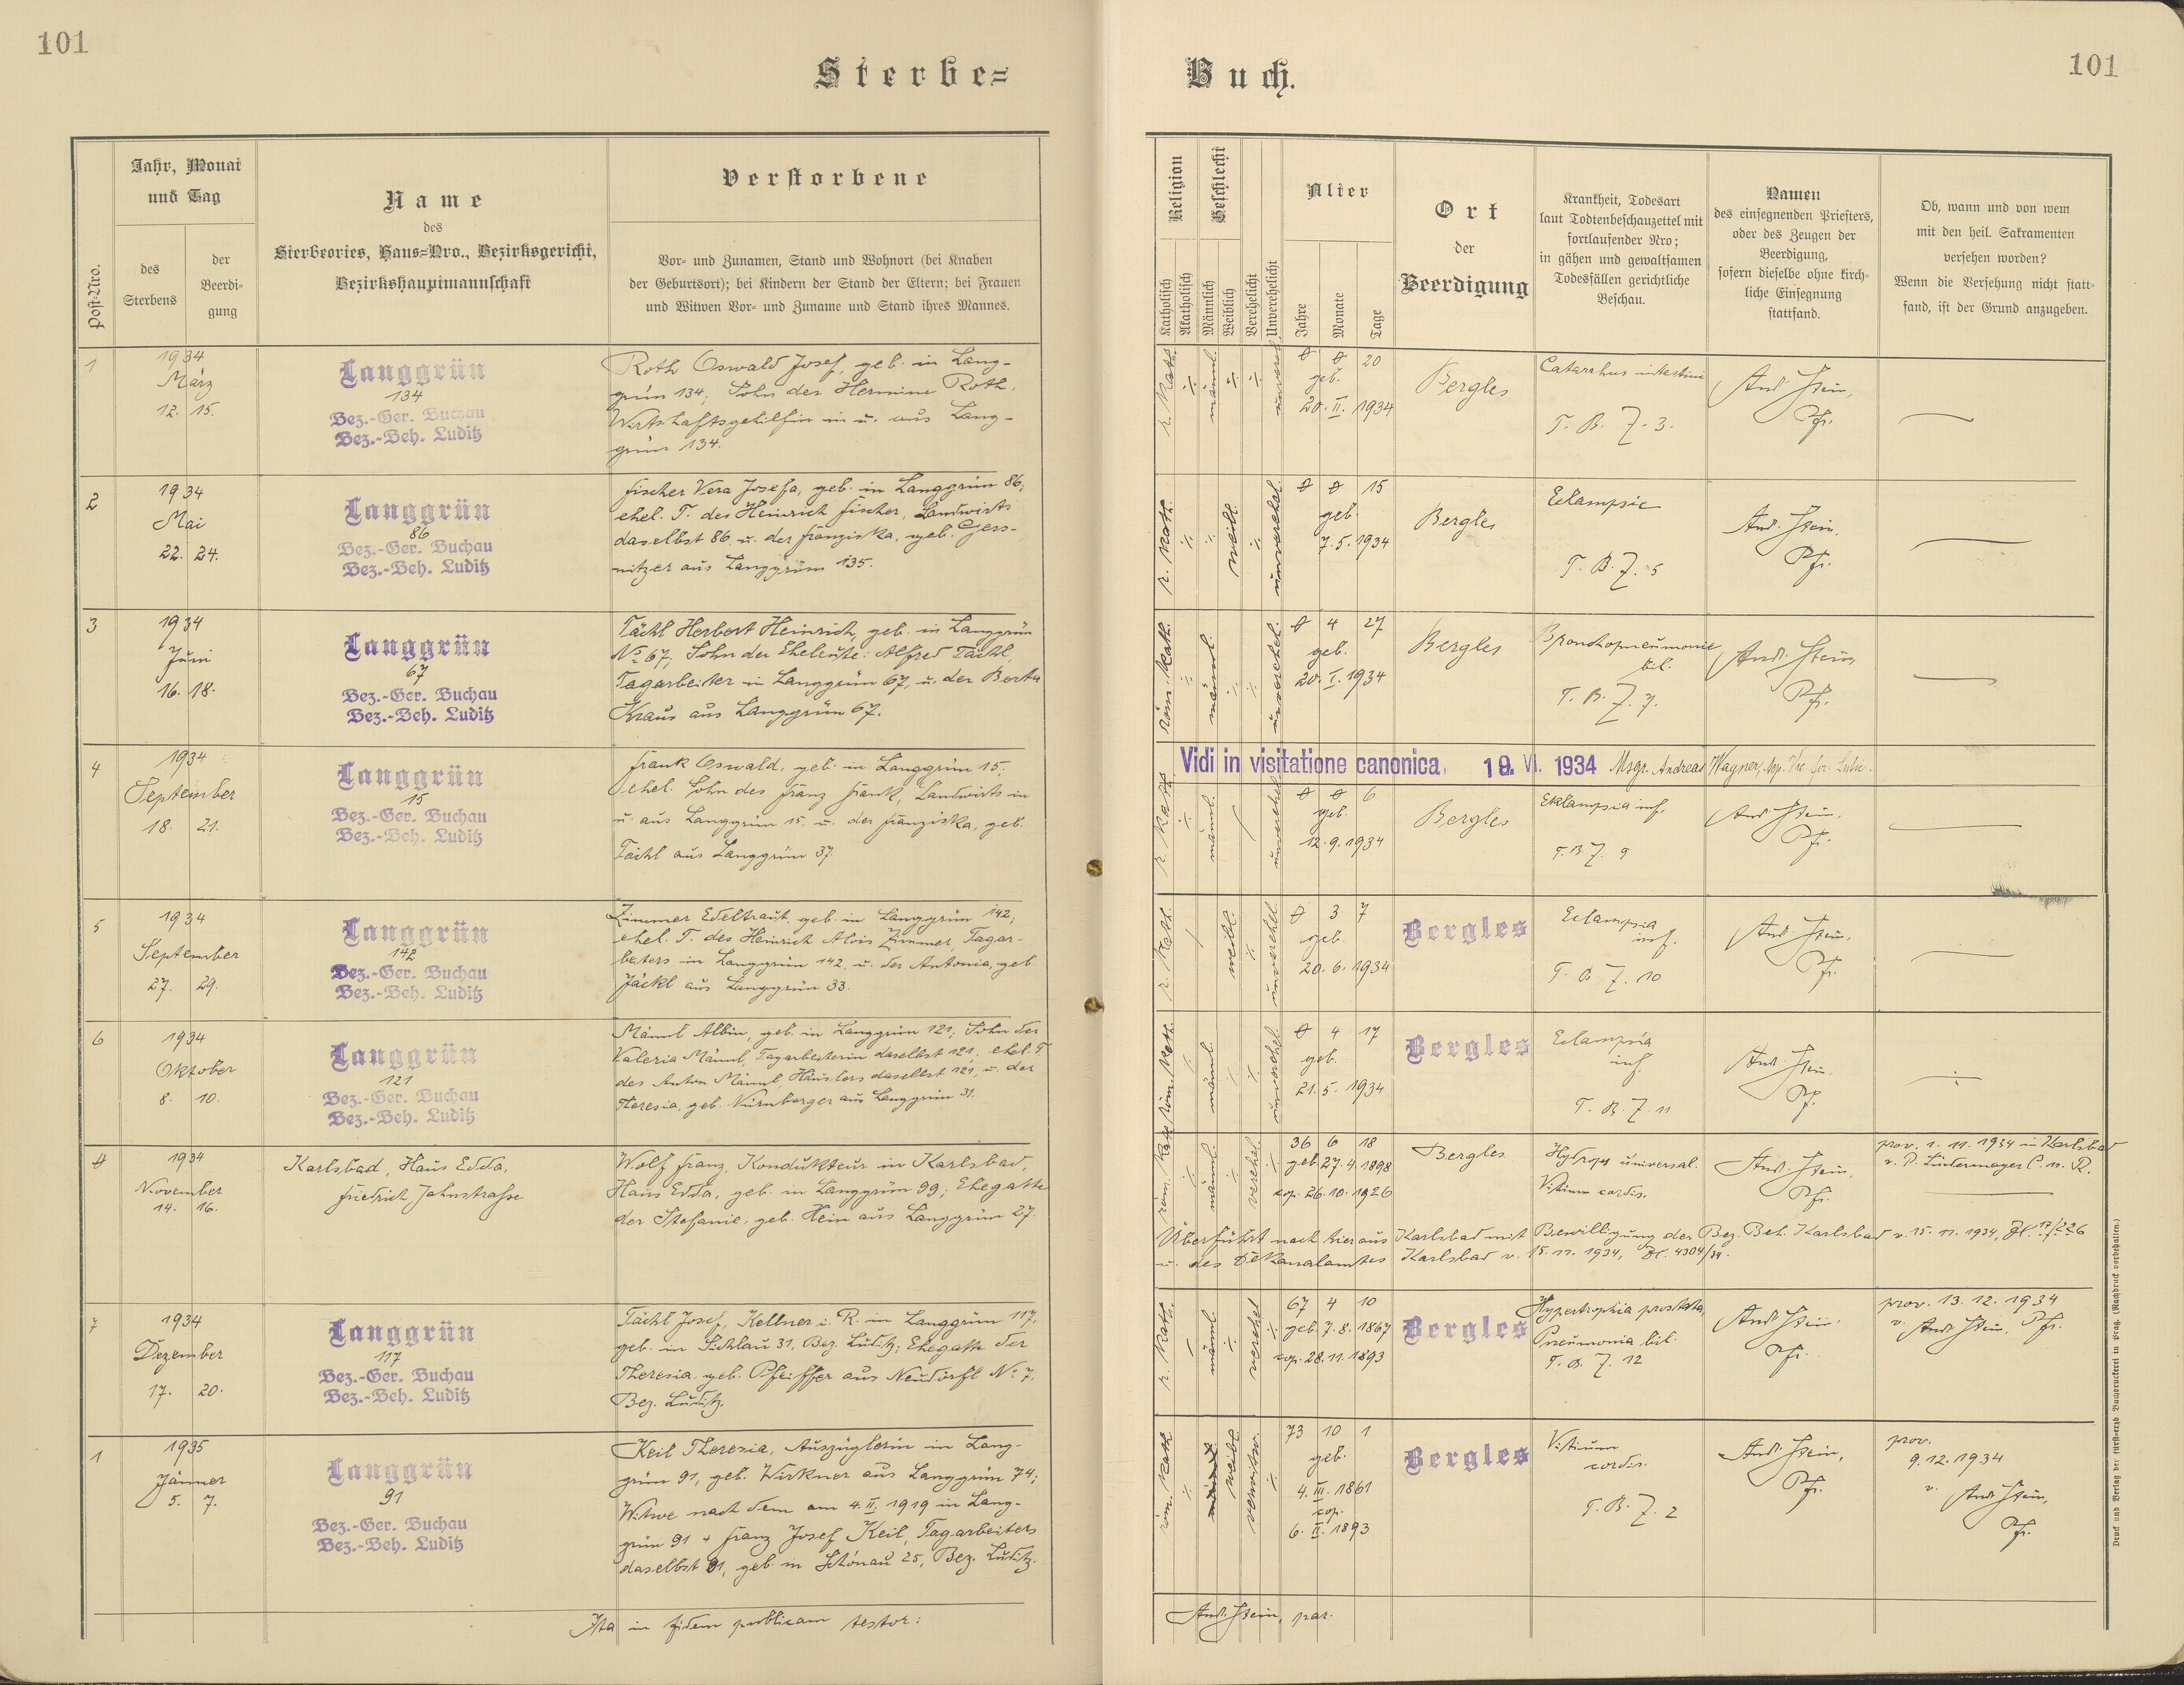 101
101
Sterbe=
Buch.
Post=Nro.
Jahr, Monat
und Tag
des
Sterbens
der
Beerdi=
gung
Name
des
Sterbeortes, Haus=Nro., Bezirksgericht,
Bezirkshauptmannschaft
Verstorbene
Vor- und Zunamen, Stand und Wohnort (bei Knaben
der Geburtsort); bei Kindern der Stand der Eltern; bei Frauen
und Witwen Vor- und Zuname und Stand ihres Mannes.
Religion
Katholisch
Akatholisch
Geschlecht
Männlich
Weiblich
Verehelicht
Unverehelicht
Alter
Jahre
Monate
Tage
Ort
der
Beerdigung
Krankheit, Todesart
laut Todtenbeschauzettel mit
fortlaufender Nro;
in gähen und gewaltsamen
Todesfällen gerichtliche
Beschau.
Namen
des einsegnenden Priesters,
oder des Zeugen der
Beerdigung,
sofern dieselbe ohne kirch=
liche Einsegnung
stattfand.
Ob, wann und von wem
mit den heil. Sakramenten
versehen worden?
Wenn die Versehung nicht statt=
fand, ist der Grund anzugeben.
1
1934
März
12. 15.
Langgrün
134
Bez.-Ger. Buchau
Bez.-Beh. Luditz
Roth Oswald Josef, geb. in Lang-
grün 134, Sohn der Hermine Roth,
Wirtschaftsgehilfin in u. aus Lang-
grün 134.
r. kath.
männl.
unverehel.
0 0 20
geb.
20. II. 1934
Bergles
Catarrhus intestini
T. B. Z. 3.
And. Stein,
Pfr.
2
1934
Mai
22. 24.
Langgrün
86
Bez.-Ger. Buchau
Bez.-Beh. Luditz
Fischer Vera Josefa, geb. in Langgrün 86,
ehel. T. des Heinrich Fischer, Landwirts
daselbst 86 u. der Franziska, geb. Gess-
nitzer aus Langgrün 135.
r. kath.
weibl.
unverehel.
0 0 15
geb.
7. 5. 1934
Bergles
Eclampsie
T. B. Z. 5
And. Stein,
Pfr.
3
1934
Juni
16. 18.
Langgrün
67
Bez.-Ger. Buchau
Bez.-Beh. Luditz
Tächl Herbert Heinrich, geb. in Langgrün
No 67; Sohn der Eheleute: Alfred Tächl,
Tagarbeiter in Langgrün 67, u. der Berta
Kraus aus Langgrün 67.
röm. kath.
männl.
unverehel.
0 4 27
geb.
20. I. 1934
Bergles
Bronchopneumonie
bil.
T. B. Z. 7.
And. Stein,
Pfr.
Vidi in visitatione canonica, 19. VI. 1934 Msgr. Andreas Wagner,
4
1934
September
18. 21.
Langgrün
15
Bez.-Ger. Buchau
Bez.-Beh. Luditz
Frank Oswald, geb. in Langgrün 15;
ehel. Sohn des Franz Frank, Landwirts in
u. aus Langgrün 15, u. der Franziska, geb.
Tächl aus Langgrün 37.
r. kath.
männl.
unverehel.
0 0 6
geb.
12. 9. 1934
Bergles
Eklampsia inf.
T. B. Z. 9
And. Stein,
Pfr.
5
1934
September
27. 29.
Langgrün
142
Bez.-Ger. Buchau
Bez.-Beh. Luditz
Zimmer Edeltraut, geb. in Langgrün 142;
ehel. T. des Heinrich Alois Zimmer, Tagar-
beiters in Langgrün 142, u. der Antonia, geb.
Jäckl aus Langgrün 33.
r. kath.
weibl.
unverehel.
0 3 7
geb.
20. 6. 1934
Bergles
Eclampsia
inf.
T. B. Z. 10
And. Stein,
Pfr.
6
1934
Oktober
8. 10.
Langgrün
121
Bez.-Ger. Buchau
Bez.-Beh. Luditz
Männl Albin, geb. in Langgrün 121; Sohn der
Valeria Männl, Tagarbeiterin daselbst 121, ehel. T.
des Anton Männl, Häuslers daselbst 121, u. der
Theresia, geb. Nürnberger aus Langgrün 31.
röm. kath.
männl.
unverehel.
0 4 17
geb.
21. 5. 1934
Bergles
Eclampsia
inf.
T. B. Z. 11
And. Stein,
Pf.
0
1934
November
14. 16.
Karlsbad, Haus Edda,
Friedrich Jahnstrasse
Wolf Franz, Kondukteur in Karlsbad,
Haus Edda, geb. in Langgrün 99; Ehegatte
der Stefanie, geb. Hein aus Langgrün 27.
röm. kath.
männl.
verehel.
36 6 18
geb. 27. 4. 1898
cop. 26. 10. 1926
Bergles
Hydrops universal.
Vitium cordis.
And. Stein,
Pfr.
prov. 1. 11. 1934 in Karlsbad
v. P. Lindermayer C. m. R.
Überführt nach hier aus Karlsbad mit Bewilligung der Bez. Beh. Karlsbad v. 15. 11. 1934, Zl. 17/226
u. des Dekanalamtes Karlsbad v. 15. 11. 1934, Zl. 4304/34.
7
1934
Dezember
17. 20.
Langgrün
117
Bez.-Ger. Buchau
Bez.-Beh. Luditz
Tächl Josef, Kellner i. R. in Langgrün 117,
geb. in Sichlau 31, Bez. Luditz; Ehegatte der
Theresia, geb. Pfeiffer aus Neudörfl No 7,
Bez. Luditz.
r. kath.
männl.
verehel.
67 4 10
geb. 7. 8. 1867
cop. 28. 11. 1893
Bergles
Hypertrophia prostata,
Pneumonia bil.
T. B. Z. 12
And. Stein,
Pfr.
prov. 13. 12. 1934
v. And. Stein, Pfr.
1
1935
Jänner
5. 7.
Langgrün
91
Bez.-Ger. Buchau
Bez.-Beh. Luditz
Keil Theresia, Auszüglerin in Lang-
grün 91, geb. Wirkner aus Langgrün 74;
Witwe nach dem am 4. II. 1919 in Lang-
grün 91 + Franz Josef Keil, Tagarbeiters
daselbst 91, geb. in Schönau 25, Bez. Luditz.
röm. kath.
weibl.
verwitw.
73 10 1
geb.
4. III. 1861
cop.
6. II. 1893
Bergles
Vitium
cordis.
T. B. Z. 2
And. Stein,
Pfr.
prov.
9. 12. 1934
v. And. Stein,
Pfr.
Ita in fidem publicam testor:
And. Stein, par.
Druck und Verlag der fürsterzb. Buchdruckerei in Prag. (Nachdruck vorbehalten.)